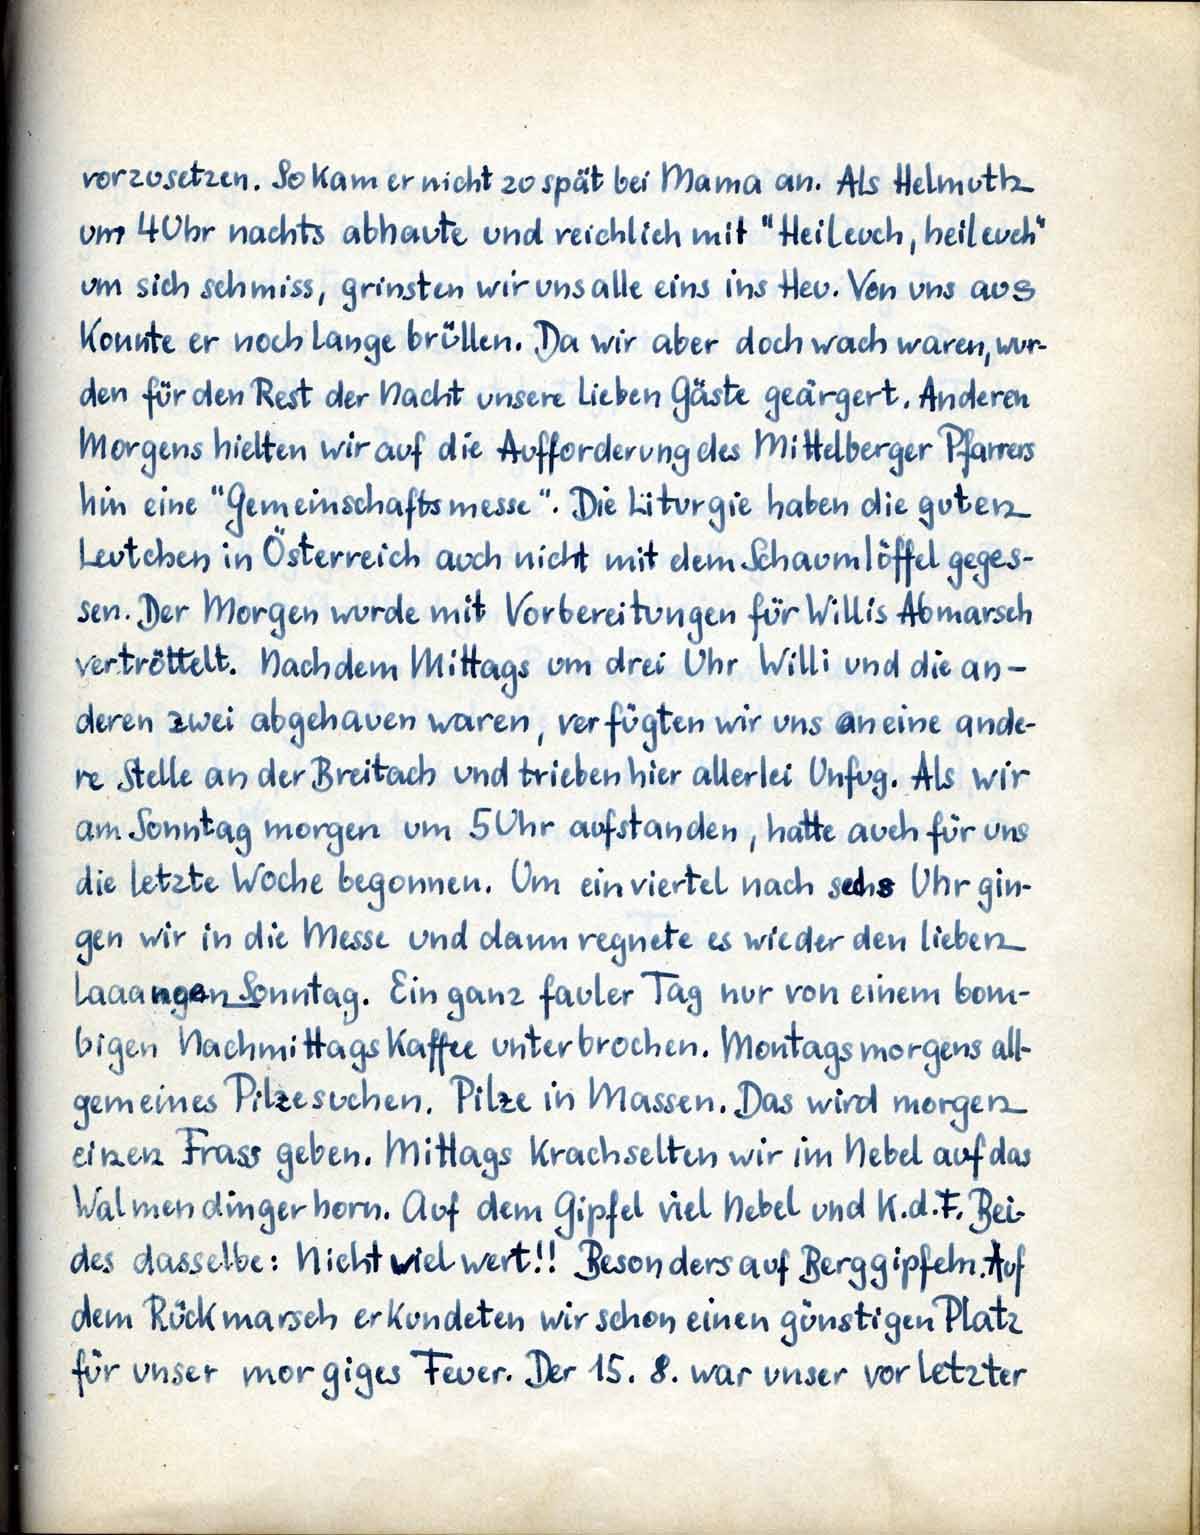 vorzusetzen. So kam er nicht zu spät bei Mama an. Als Helmuth
um 4 Uhr nachts abhaute und reichlich mit "Heil euch, heil euch"
um sich schmiss, grinsten wir uns alle eins ins Heu. Von uns aus
konnte er noch lange brüllen. Da wir aber doch wach waren, wur-
den für den Rest der Nacht unsere lieben Gäste geärgert. Anderen
Morgens hielten wir auf die Aufforderung des Mittelberger Pfarrers
hin eine "Gemeinschaftsmesse". Die Liturgie haben die guten
Leutchen in Österreich auch nicht mit dem Schaumlöffel geges-
sen. Der Morgen wurde mit Vorbereitungen für Willis Abmarsch
vertröttelt. Nachdem Mittags um drei Uhr Willi und die an-
deren zwei abgehauen waren, verfügten wir uns an eine ande-
re Stelle an der Breitach und trieben hier allerlei Unfug. Als wir
am Sonntag morgen um 5 Uhr aufstanden, hatte auch für uns
die letzte Woche begonnen. Um ein viertel nach sechs Uhr gin-
gen wir in die Messe und dann regnete es wieder den lieben
laaangen Sonntag. Ein ganz fauler Tag nur von einem bom-
bigen Nachmittagskaffee unterbrochen. Montagsmorgens all-
gemeines Pilzesuchen. Pilze in Massen. Das wird morgen
einen Frass geben. Mittags krachselten wir im Nebel auf das
Walmendingerhorn. Auf dem Gipfel viel Nebel und K.d.F. Bei-
des dasselbe: Nicht viel wert!! Besonders auf Berggipfeln. Auf
dem Rückmarsch erkundeten wir schon einen günstigen Platz
für unser morgiges Feuer. Der 15. 8. war unser vorletzter